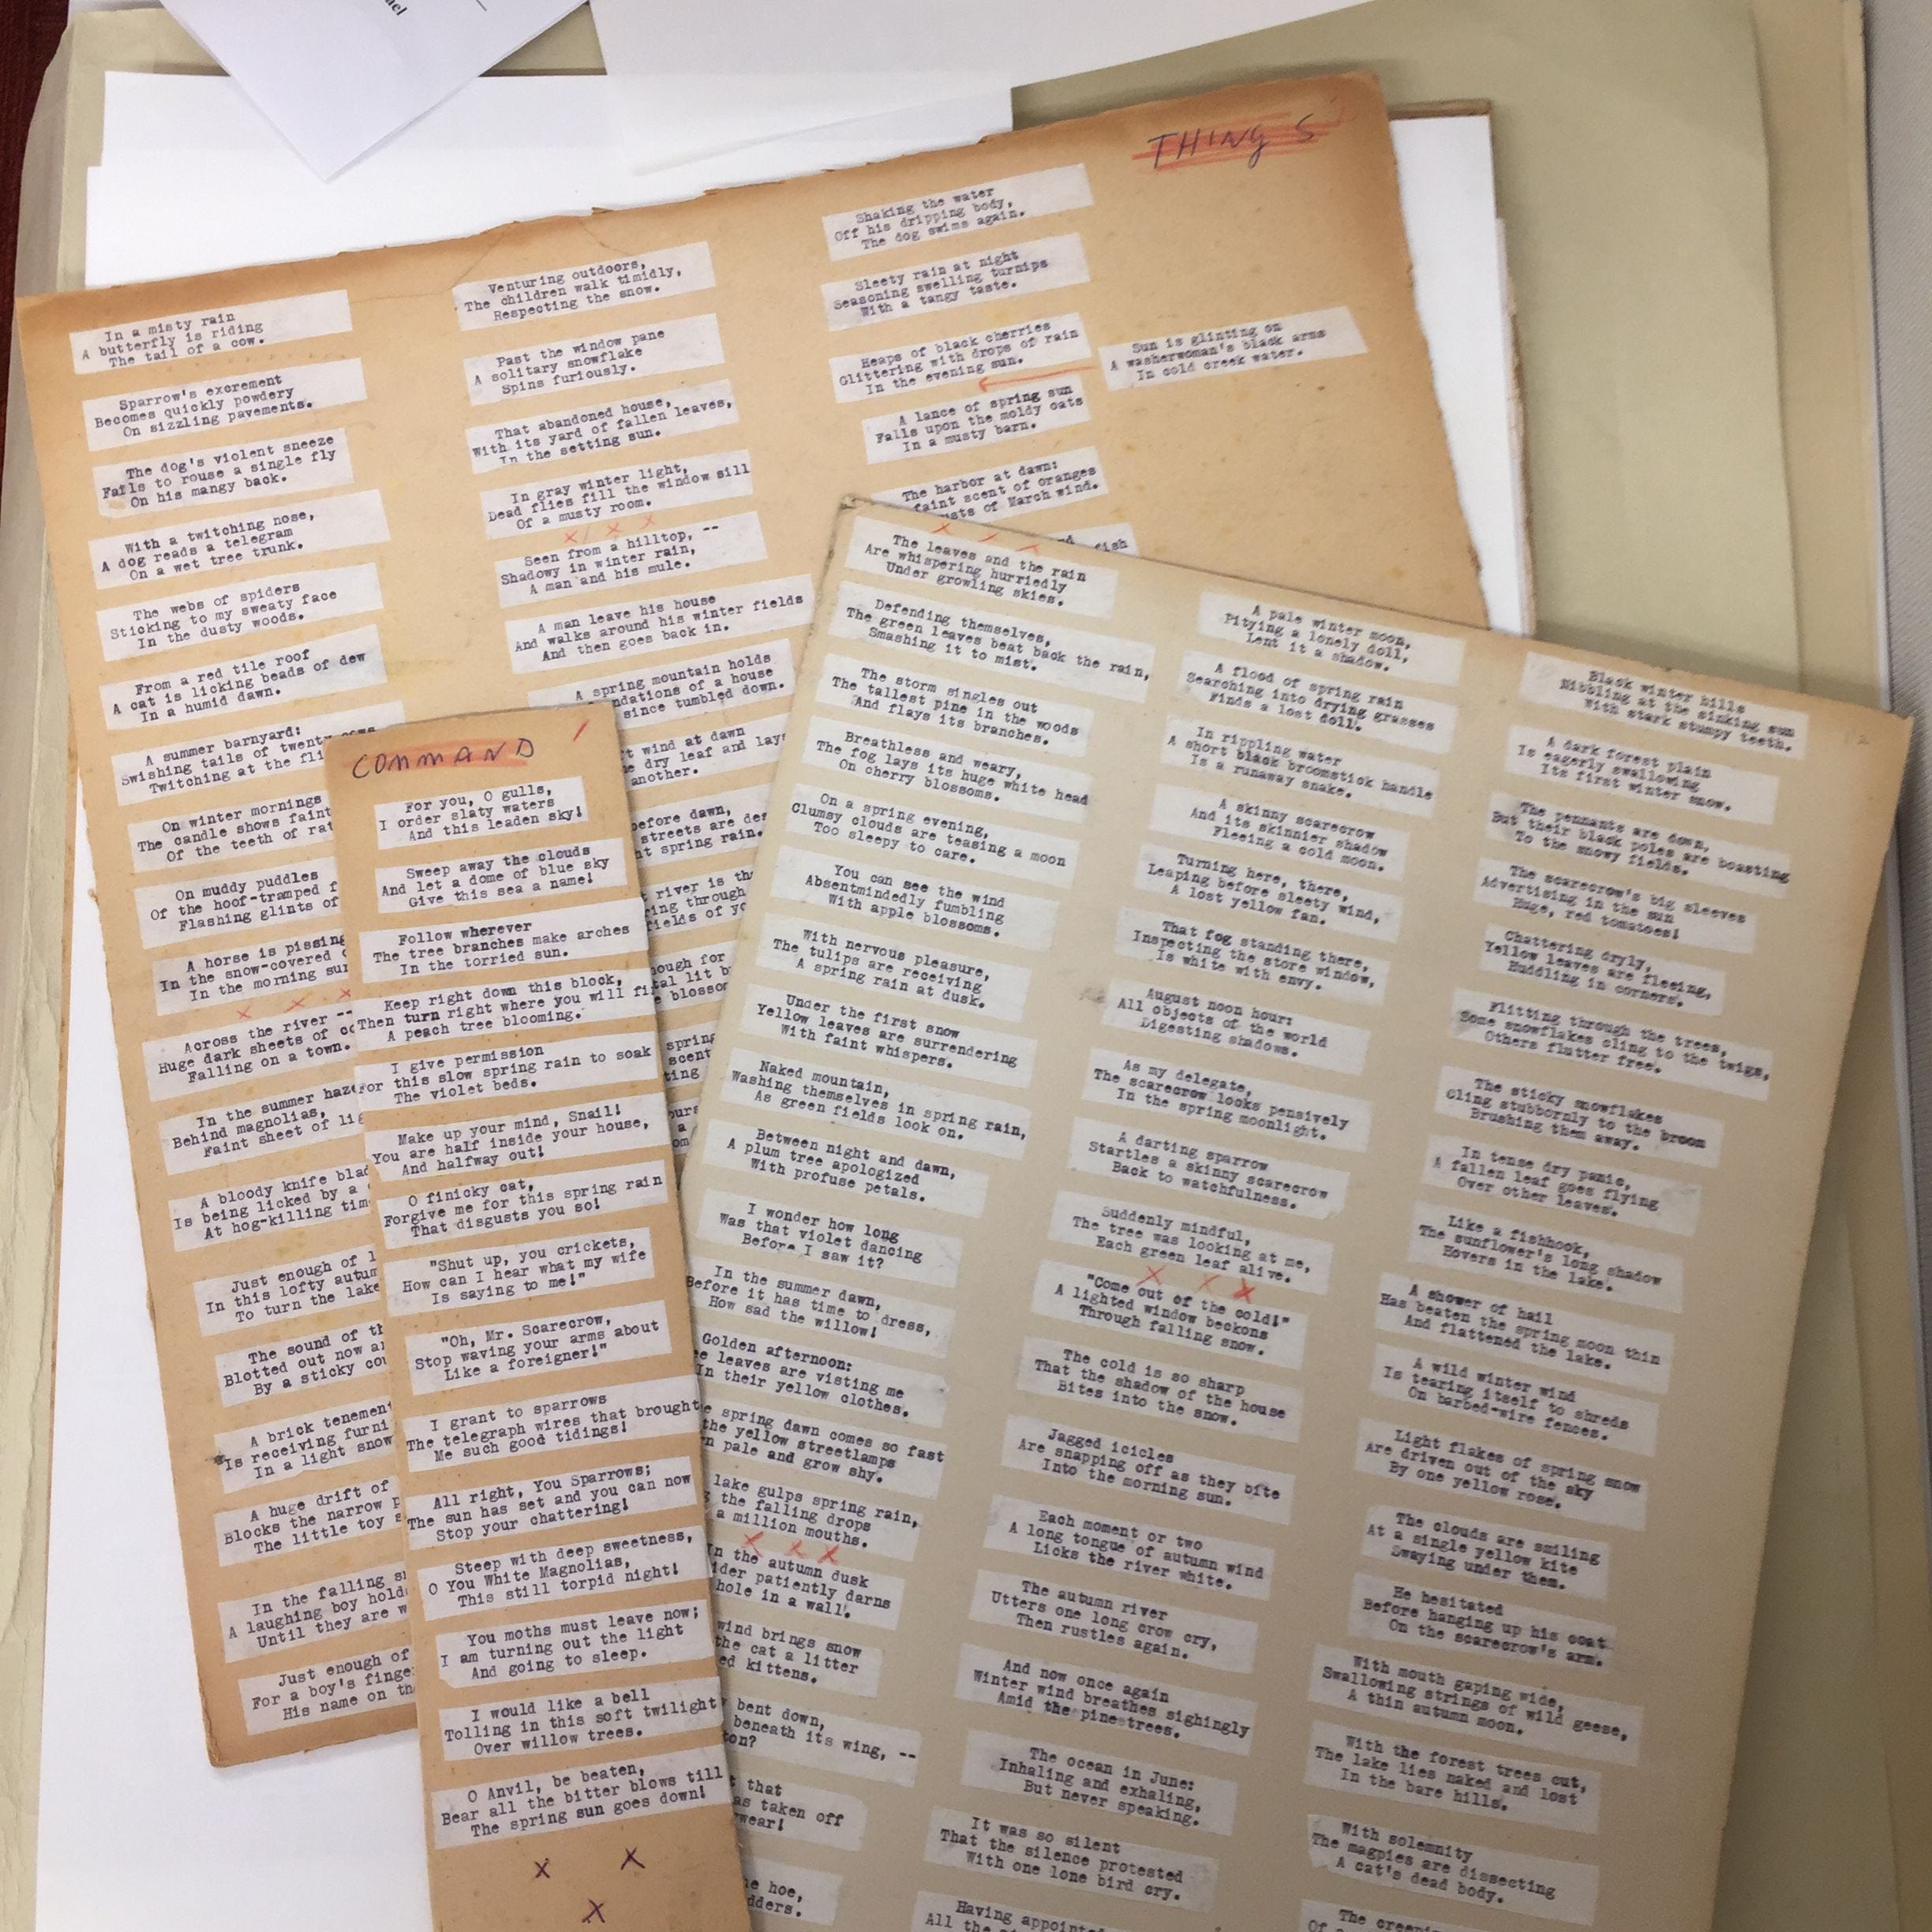 THINGS
In a misty rain
A butterfly is riding
The tail of a cow.
Sparrow's excrement
Becomes quickly powdery
On sizzling pavements.
The dog's violent sneeze
Fails to rouse a single fly
On his mangy back.
With a twitching nose,
A dog reads a telegram
On a wet tree trunk.
The webs of spiders
Sticking to my sweaty face
In the dusty woods.
From a red tile roof
A cat is licking beads of dew
In a humid dawn.
A summer barnyard:
Swishing tails of twenty
Twitching at the
On winter mornings
The candle shows faint
Of the teeth of
On muddy puddles
Of the hoof-tramped
Flashing glints of
A horse is pissing
In the snow-covered
In the morning
x x x
Across the river --
Huge dark sheets of
Falling on a town.
In the summer haze
Behind magnolias,
Faint sheet of
A bloody knife
Is being licked by a
At hog-killing
Just enough of
In this lofty
To turn the lake
The sound of
Blotted out now
By a sticky
A brick tenement
Is receiving
In a light snow
A huge drift of
Blocks the narrow
The little toy
In the falling
A laughing boy
Until they are
Just enough of
For a boy's
His name on
Venturing outdoors,
The children walk timidly,
Respecting the snow.
Past the window pane
A solitary snowflake
Spins furiously.
That abandoned house,
With its yard of fallen leaves,
In the setting sun.
In gray winter light,
Dead flies fill the window sill
Of a musty room.
x x x
Seen from a hilltop, --
Shadowy in winter rain,
A man and his mule.
A man leave his house
And walks around his winter fields
And then goes back in.
A spring mountain holds
of a house
since tumbled down.
wind at dawn
dry leaf and lays
another.
before dawn,
streets are
spring rain.
river is
through
fields of
for
lit
blossom
spring
scent
Shaking the water
Off his dripping body,
The dog swims again.
Sleety rain at night
Seasoning swelling turnips
With a tangy taste.
Heaps of black cherries
Glittering with drops of rain
In the evening sun.
Sun is glinting on
A washerwoman's black arms
In cold creek water.
A lance of spring sun
Falls upon the moldy oats
In a musty barn.
The harbor at dawn:
faint scent of oranges
of March wind.
x x x
fish
COMMAND
For you, O gulls,
I order slaty waters
And this leaden sky!
Sweep away the clouds
And let a dome of blue sky
Give this sea a name!
Follow wherever
The tree branches make arches
In the torried sun.
Keep right down this block,
Then turn right where you will
A peach tree blooming.
I give permission
For this slow spring rain to soak
The violet beds.
Make up your mind, Snail!
You are half inside your house,
And halfway out!
O finicky cat,
Forgive me for this spring rain
That disgusts you so!
"Shut up, you crickets,
How can I hear what my wife
Is saying to me!"
"Oh, Mr. Scarecrow,
Stop waving your arms about
Like a foreigner!"
I grant to sparrows
The telegraph wires that brought
Me such good tidings!
All right, You Sparrows;
The sun has set and you can now
Stop your chattering!
Steep with deep sweetness,
O You White Magnolias,
This still torpid night!
You moths must leave now;
I am turning out the light
And going to sleep.
I would like a bell
Tolling in this soft twilight
Over willow trees.
O Anvil, be beaten,
Bear all the bitter blows till
The spring sun goes down!
x x
x
The leaves and the rain
Are whispering hurriedly
Under growling skies.
Defending themselves,
The green leaves beat back the rain,
Smashing it to mist.
The storm singles out
The tallest pine in the woods
And flays its branches.
Breathless and weary,
The fog lays its huge white head
On cherry blossoms.
On a spring evening,
Clumsy clouds are teasing a moon
Too sleepy to care.
You can see the wind
Absentmindedly fumbling
With apple blossoms.
With nervous pleasure,
The tulips are receiving
A spring rain at dusk.
Under the first snow
Yellow leaves are surrendering
With faint whispers.
Naked mountain,
Washing themselves in spring rain,
As green fields look on.
Between night and dawn,
A plum tree apologized
With profuse petals.
I wonder how long
Was that violet dancing
Before I saw it?
In the summer dawn,
Before it has time to dress,
How sad the willow!
Golden afternoon:
leaves are visting me
In their yellow clothes.
spring dawn comes so fast
the yellow streetlamps
pale and grow shy.
lake gulps spring rain,
the falling drops
a million mouths.
x x x
In the autumn dusk
patiently darns
hole in a wall.
wind brings snow
the cat a litter
kittens.
bent down,
beneath its wing, --
that
taken off
wear!
hoe,
A pale winter moon,
Pitying a lonely doll,
Lent it a shadow.
A flood of spring rain
Searching into drying grasses
Finds a lost doll.
In rippling water
A short black broomstick handle
Is a runaway snake.
A skinny scarecrow
And its skinnier shadow
Fleeing a cold moon.
Turning here, there,
Leaping before sleety wind,
A lost yellow fan.
That fog standing there,
Inspecting the store window,
Is white with envy.
August noon hour:
All objects of the world
Digesting shadows.
As my delegate,
The scarecrow looks pensively
In the spring moonlight.
A darting sparrow
Startles a skinny scarecrow
Back to watchfulness.
Suddenly mindful,
The tree was looking at me,
Each green leaf alive.
x x x
"Come out of the cold!"
A lighted window beckons
Through falling snow.
The cold is so sharp
That the shadow of the house
Bites into the snow.
Jagged icicles
Are snapping off as they bite
Into the morning sun.
Each moment or two
A long tongue of autumn wind
Licks the river white.
The autumn river
Utters one long crow cry,
Then rustles again.
And now once again
Winter wind breathes sighingly
Amid the pinestrees.
The ocean in June:
Inhaling and exhaling,
But never speaking.
It was so silent
That the silence protested
With one lone bird cry.
Having
All the
2
Black winter hills
Nibbling at the sinking sun
With stark stumpy teeth.
A dark forest plain
Is eagerly swallowing
Its first winter snow.
The pennants are down,
But their black poles are boasting
To the snowy fields.
The scarecrow's big sleeves
Advertising in the sun
Huge, red tomatoes!
Chattering dryly,
Yellow leaves are fleeing,
Huddling in corners.
Flitting through the trees,
Some snowflakes cling to the twigs,
Others flutter free.
The sticky snowflakes
Cling stubbornly to the broom
Brushing them away.
In tense dry panic,
A fallen leaf goes flying
Over other leaves.
Like a fishhook,
The sunflower's long shadow
Hovers in the lake.
A shower of hail
Has beaten the spring moon thin
And flattened the lake.
A wild winter wind
Is tearing itself to shreds
On barbed-wire fences.
Light flakes of spring snow
Are driven out of the sky
By one yellow rose.
The clouds are smiling
At a single yellow kite
Swaying under them.
He hesitated
Before hanging up his coat
On the scarecrow's arm.
With mouth gaping wide,
Swallowing strings of wild geese,
A thin autumn moon.
With the forest trees cut,
The lake lies naked and lost
In the bare hills.
With solemnity
The magpies are dissecting
A cat's dead body.
The